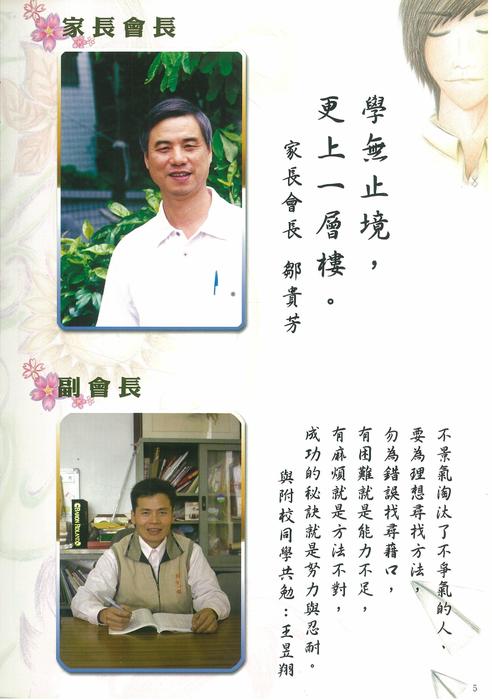 家長會長
學無止境，
更上一層樓。
家長會長 鄒貴芳
副會長
不景氣淘汰了不爭氣的人，
要為理想尋找方法，
勿為錯誤找尋藉口，
有困難就是能力不足，
有麻煩就是方法不對，
成功的秘訣就是努力與忍耐。
與附校同學共勉：王昱翔
5